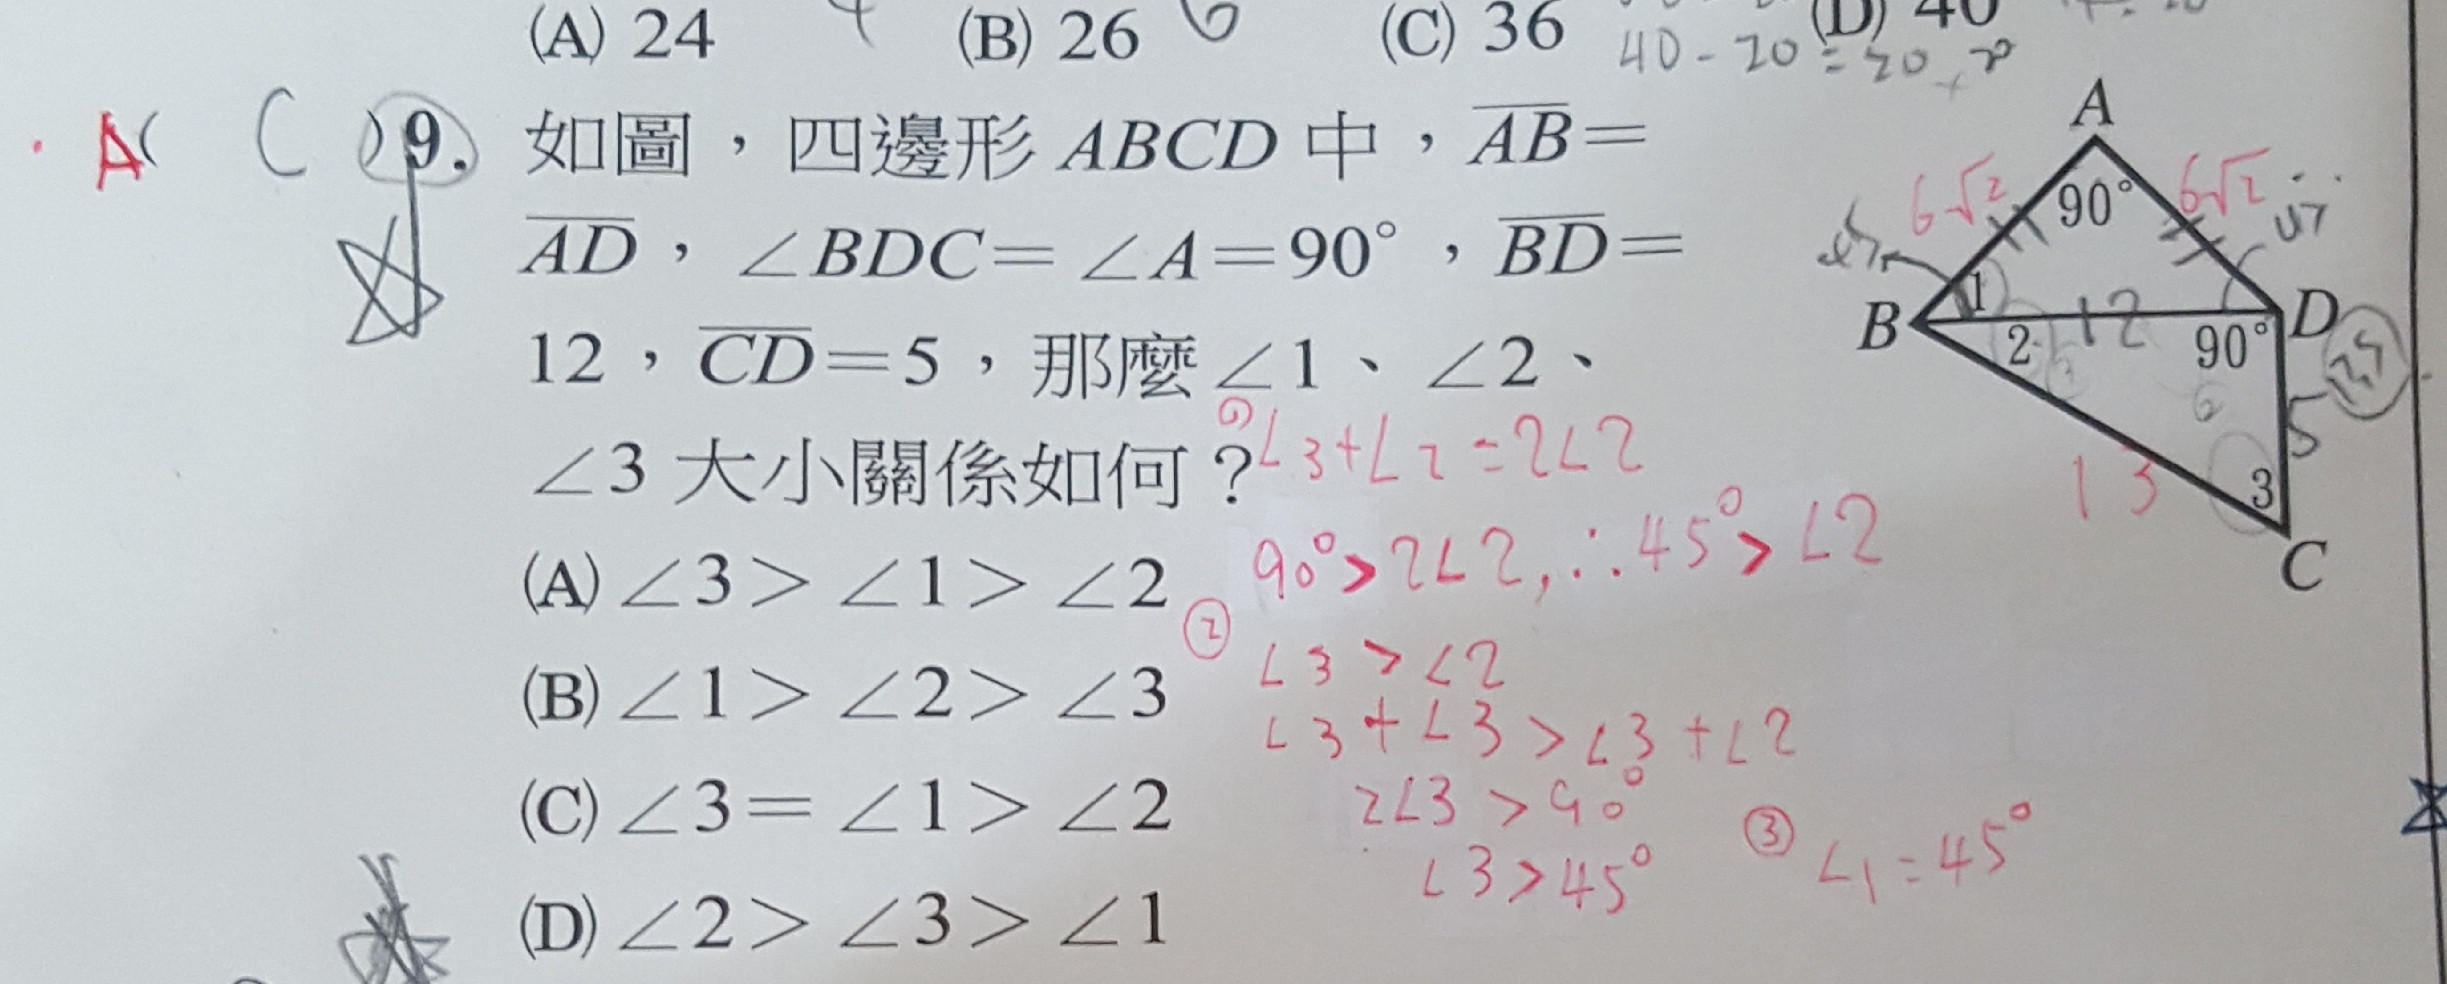 (A) 24 (B) 26 6 (C) 36 (D) 40
40-20=20
A( C )9. 如圖，四邊形 ABCD 中，AB=
AD，∠BDC=∠A=90°，BD=
12，CD=5，那麼∠1、∠2、
∠3 大小關係如何？
(A) ∠3>∠1>∠2
(B) ∠1>∠2>∠3
(C) ∠3=∠1>∠2
(D) ∠2>∠3>∠1
① ∠3+∠2=2∠2
90°>2∠2,∴45°>∠2
② ∠3>∠2
∠3+∠3>∠3+∠2
2∠3>90°
∠3>45°
③ ∠1=45°
A
6√2 90° 6√2
45
B 1 12 D
2 90°
5
13 3
C